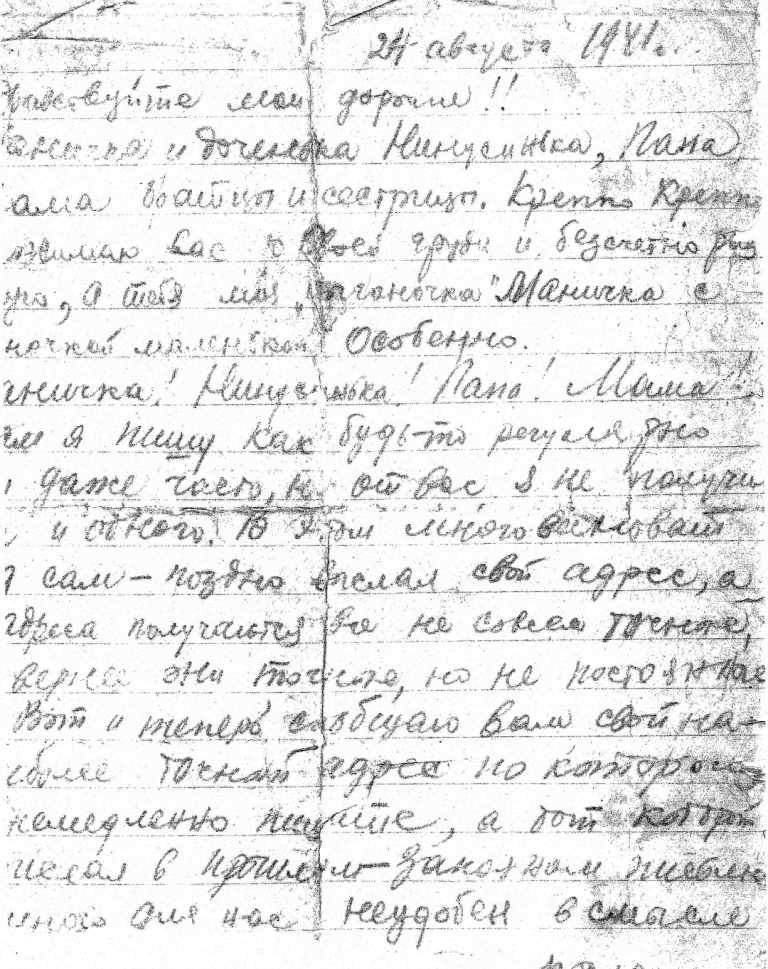 24 августа 1941 г.
равствуйте мои дорогие!!
аничка и доченька Нинусинька, Папа
ама братцы и сестрицы. Крепко Крепко
ижимаю вас к своей груди и безсчетно
, а тебя моя „цыганочка" Маничка с
ночкой маленькой Особенно.
аничка! Нинусинька! Папа! Мама!!
ам я пишу как будь-то регулярно
и даже часто, но от вас я не получил
и одного. В этом много виноват
я сам – поздно выслал свой адрес, а
адреса получаются все не совсем точные,
вернее они точные, но не постоянные
Вот и теперь сообщаю вам свой на-
иболее точный адрес по которому
немедленно пишите, а тот который
писал в прошлом заказном письме
много для нас неудобен в смысле